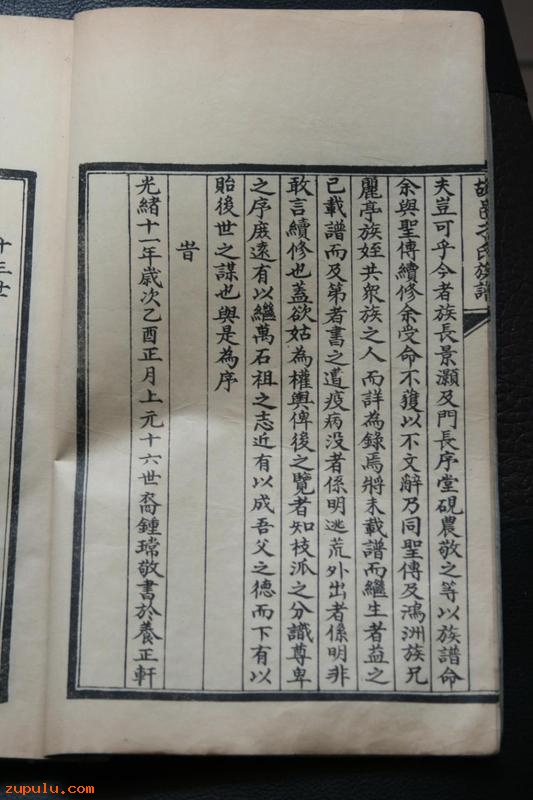 氏族譜
夫豈可乎今者族長景灝及門長序堂硯農敬之等以族譜命
余與聖傳續修余受命不獲以不文辭乃同聖傳及鴻洲族兄
麗亭族姪共衆族之人而詳為錄焉將未載譜而繼生者益之
已載譜而及第者書之遭疫病没者係明逃荒外出者係明非
敢言續修也蓋欲姑為權輿俾後之覽者知枝派之分識尊卑
之序庶遠有以繼萬石祖之志近有以成吾父之德而下有以
貽後世之謀也與是為序
旹
光緒十一年歲次乙酉正月上元十六世裔鍾瑺敬書於養正軒
十三世
zupulu.com